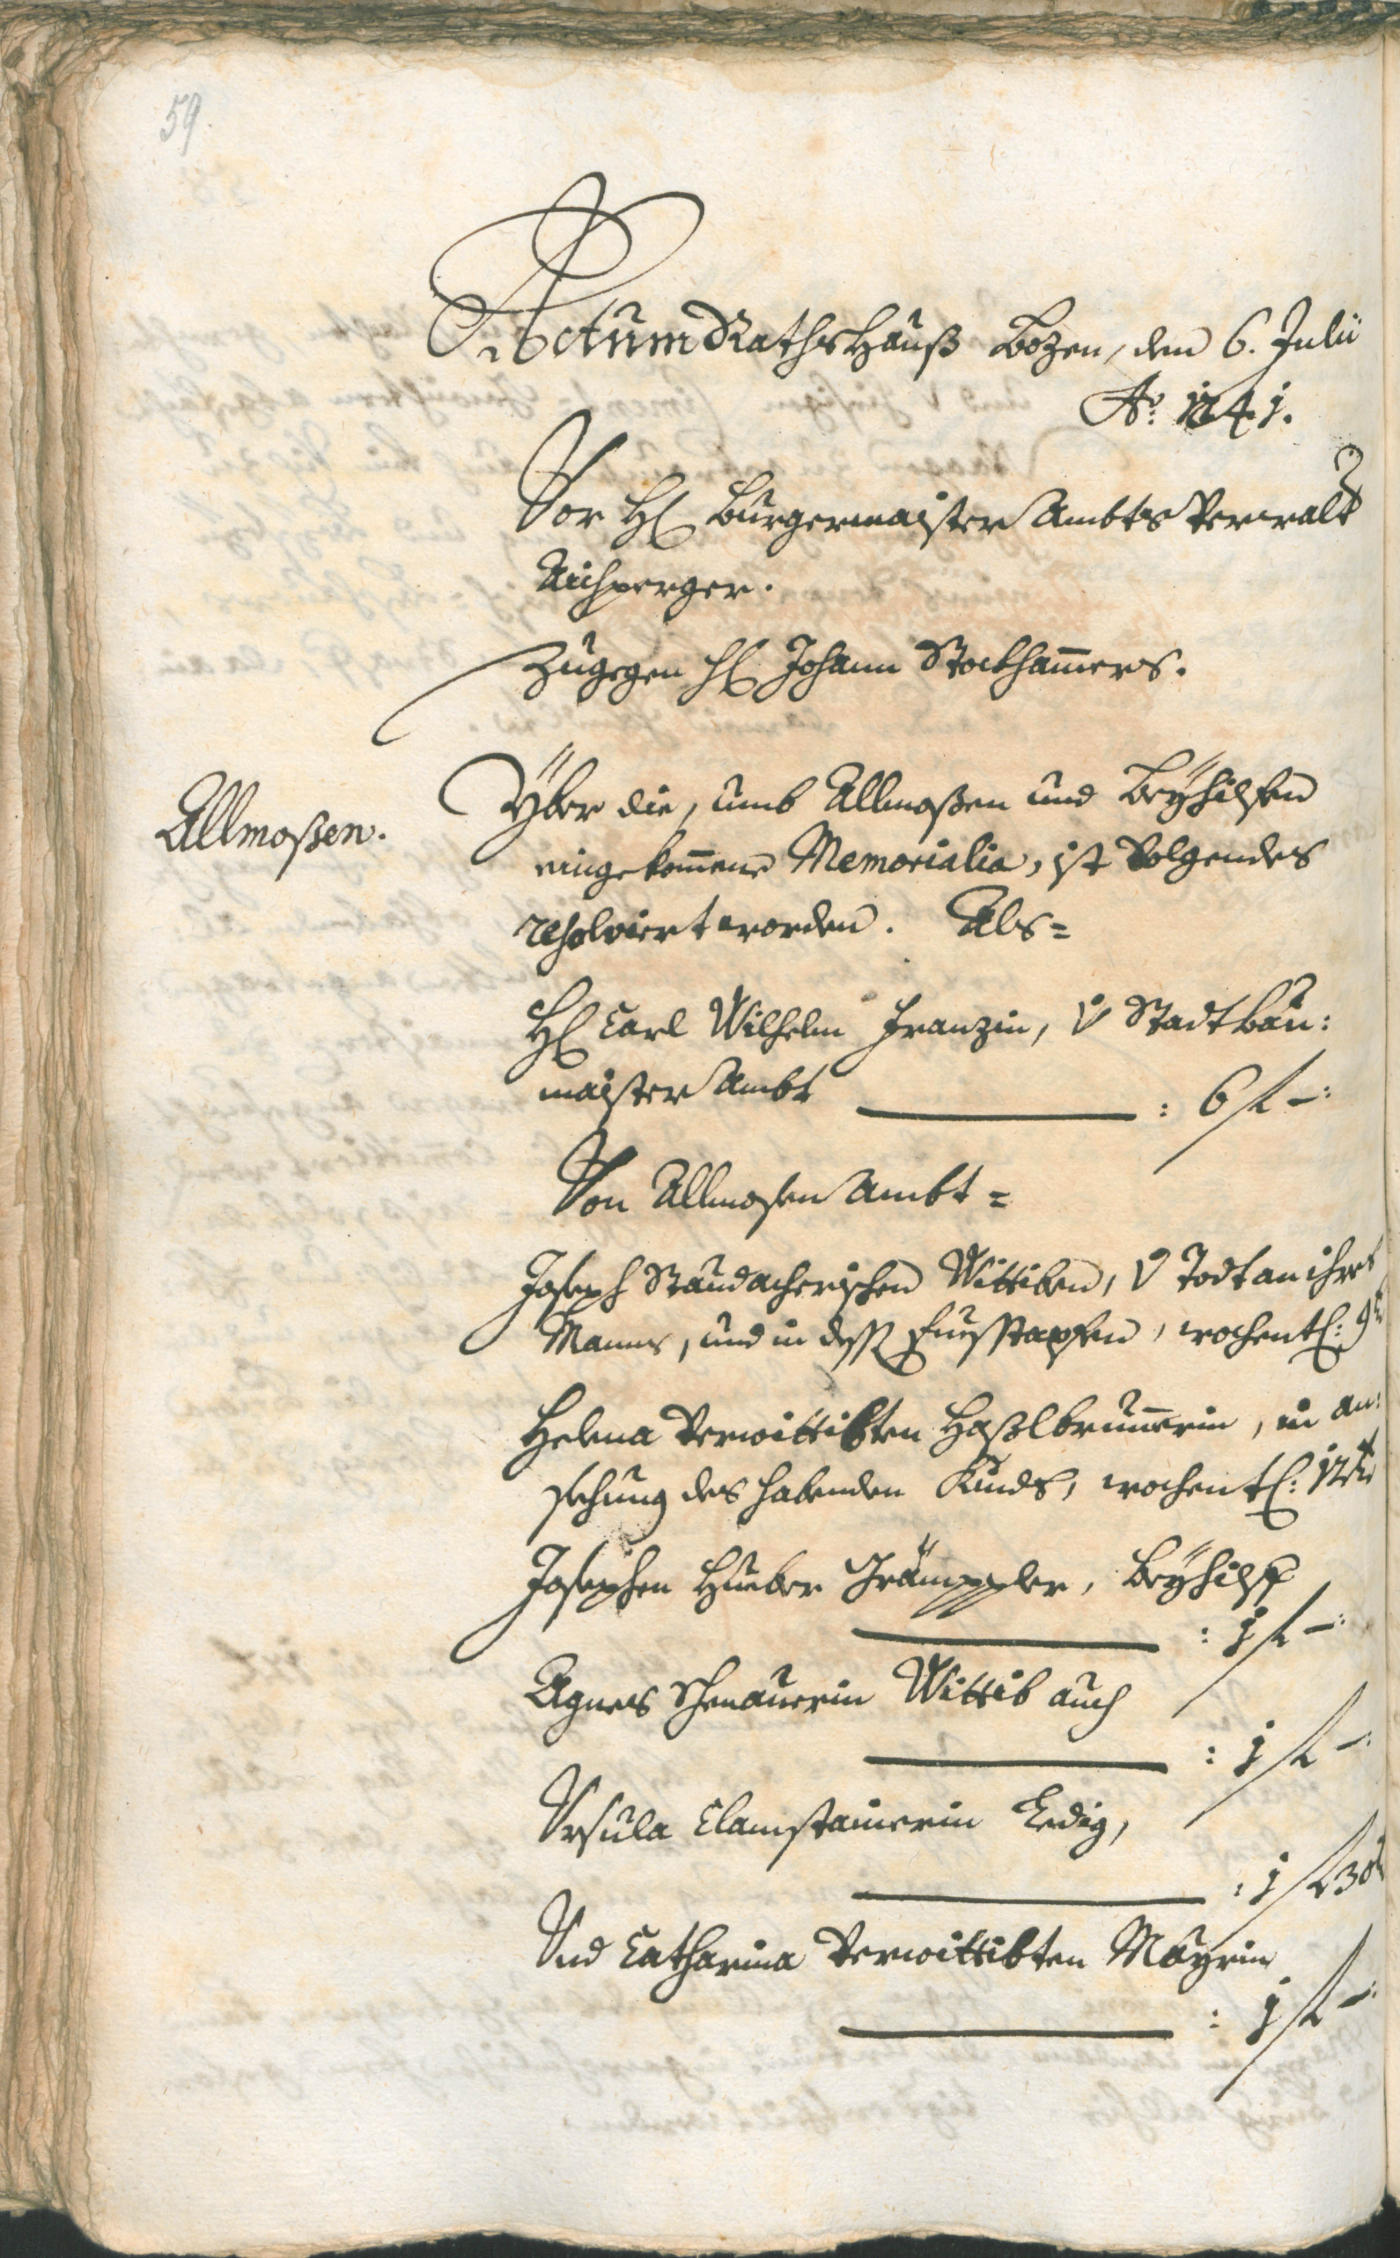 59.
Actum Raths Hauß Bozen, den 6. Julii
Ao: 1741.
Vor H: Burgermaister Ambts Verwalt
Aichperger.
Zugegen H: Johann Stockhamers.
Allmoßen.
Yber die, umb Allmoßen und Beÿhilfen
eingekomene Memorialia, ist Volgendes
resolviert worden. Als=
H: Carl Wilhelm Franzin, v Stadtbau:
maister Ambt : 6 fl –:
Von Allmosen Ambt =
Joseph Staudacherischen Wittiben, v Todt an ihres
Manns, und in dess Fuesstapfen, wochentl: 9 kr
Helena Verwittibten Haßlbrunerin, in an:
sechung des habenden Kinds, wochentl: 12 kr
Josephen Hueber Trämppler, Beÿhilf
: 1 fl –:
Agnes Schenauerin Wittib auch
: 1 fl –:
Ursula Clamstainerin Ledig,
: 1 fl 30
Und Catharina Verwittibten Mayrin
: 1 fl –: